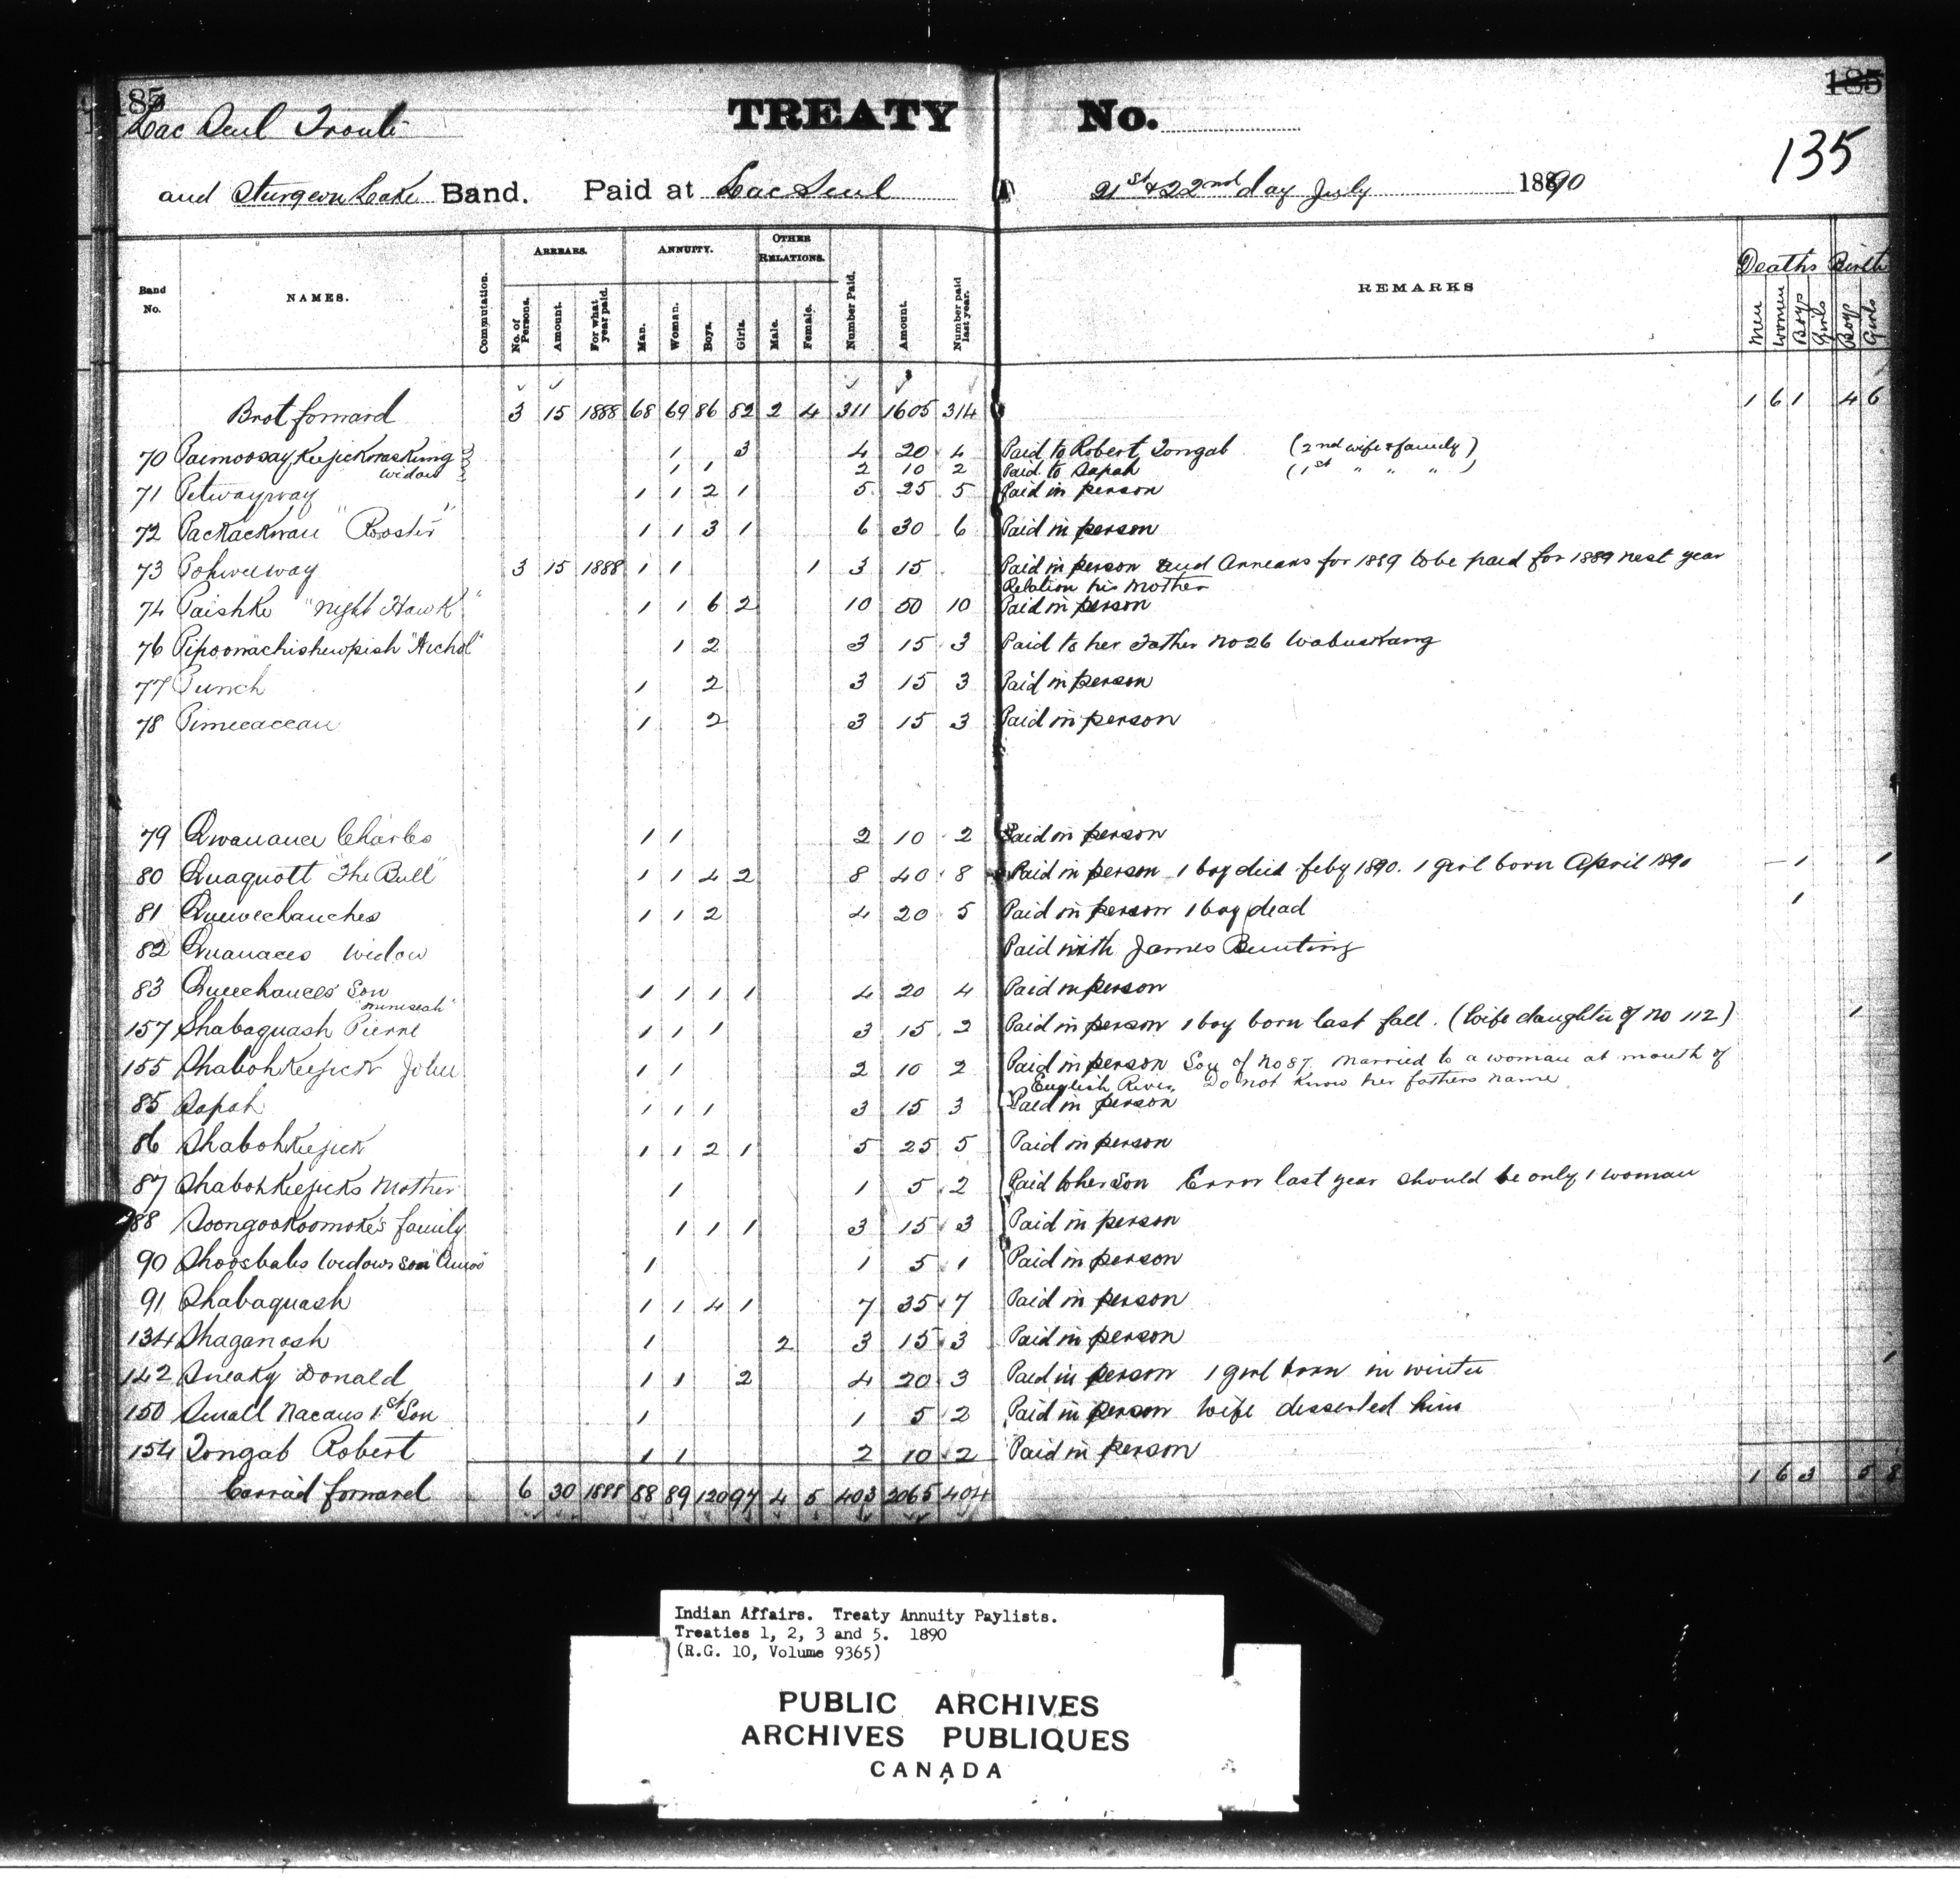 185 185
Lac Seul Trout TREATY No. 135
and Sturgeon Lake Band. Paid at Lac Seul 21st & 22nd day July 1890
Band No. NAMES. Commutation. ARREARS. No. of Persons. Amount. For what year paid. ANNUITY. Man. Woman. Boys. Girls. OTHER RELATIONS. Male. Female. Number Paid. Amount. Number paid last year. REMARKS Deaths Men Women Boys Girls Birth Boys Girls
Brot forward 3 15 1888 68 69 86 82 2 4 311 1605 314 1 6 1 4 6
70 Paimoosay Keejickwaskung 1 3 4 20 4 Paid to Robert Tongab (2nd wife & family)
widow 1 1 2 10 2 Paid to Sapah (1st " " " )
71 Petwayway 1 1 2 1 5 25 5 Paid in person
72 Packackwau "Rooster" 1 1 3 1 6 30 6 Paid in person
73 Pohweeway 3 15 1888 1 1 1 3 15 Paid in person and Arrears for 1889 to be paid for 1889 next year
Relation his Mother
74 Paishke "Night Hawk" 1 1 6 2 10 50 10 Paid in person
76 Pipoonachishewpish "Nichol" 1 2 3 15 3 Paid to her Father No 26 Wabuskang
77 Punch 1 2 3 15 3 Paid in person
78 Pimeeaceau 1 2 3 15 3 Paid in person
79 Qwauauce Charles 1 1 2 10 2 Paid in person
80 Quaquott "The Bull" 1 1 4 2 8 40 8 Paid in person 1 boy died feby 1890. 1 girl born April 1890 1 1
81 Queuechauches 1 1 2 4 20 5 Paid in person 1 boy dead 1
82 Quauaces widow Paid with James Bunting
83 Queechauces Son 1 1 1 1 4 20 4 Paid in person
"Miniseah"
157 Shabaquash Pierre 1 1 1 3 15 2 Paid in person 1 boy born last fall. (Wife daughter of No 112) 1
155 Shabohkeejick John 1 1 2 10 2 Paid in person Son of No 87. Married to a woman at mouth of
English River. Do not know her fathers name
85 Sapah 1 1 1 3 15 3 Paid in person
86 Shabohkeejick 1 1 2 1 5 25 5 Paid in person
87 Shabohkeejicks Mother 1 1 5 2 Paid to her Son Error last year should be only 1 woman
88 Soongookoomoke's family 1 1 1 3 15 3 Paid in person
90 Shoosbabs Widows son "Amos" 1 1 5 1 Paid in person
91 Shabaquash 1 1 4 1 7 35 7 Paid in person
134 Shaganash 1 2 3 15 3 Paid in person
142 Sneaky Donald 1 1 2 4 20 3 Paid in person 1 girl born in winter 1
150 Small Nacaus 1st Son 1 1 5 2 Paid in person Wife desserted him
154 Tongab Robert 1 1 2 10 2 Paid in person
Carried forward 6 30 1888 88 89 120 97 4 5 403 2065 404 1 6 3 5 8
Indian Affairs. Treaty Annuity Paylists.
Treaties 1, 2, 3 and 5. 1890
(R.G. 10, Volume 9365)
PUBLIC ARCHIVES
ARCHIVES PUBLIQUES
CANADA